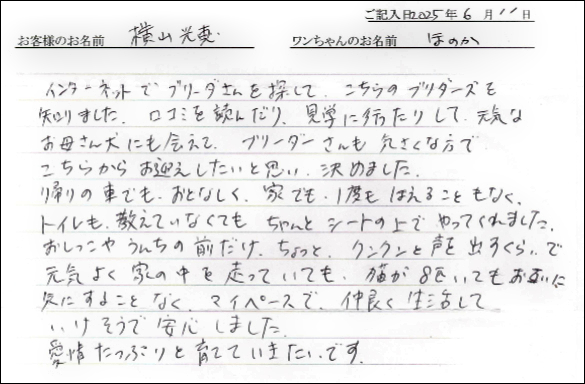 ご記入日2025年6月11日
お客様のお名前 横山光恵 ワンちゃんのお名前 ほのか
インターネットでブリーダさんを探して、こちらのブリダーズを
知りました。口コミを読んだり、見学に行ったりして、元気な
お母さん犬にも会えて、ブリーダーさんも気さくな方で
こちらからお迎えしたいと思い、決めました。
帰りの車でも、おとなしく、家でも、1度もほえることもなく、
トイレも、教えていなくてもちゃんとシートの上でやってくれました。
おしっこやうんちの前だけ、ちょっと、クンクンと声を出すくらいで
元気よく家の中を走っていても、猫が8匹いてもお互いに
気にすることなく、マイペースで、仲良く生活して
いけそうで安心しました。
愛情たっぷりと育てていきたいです。